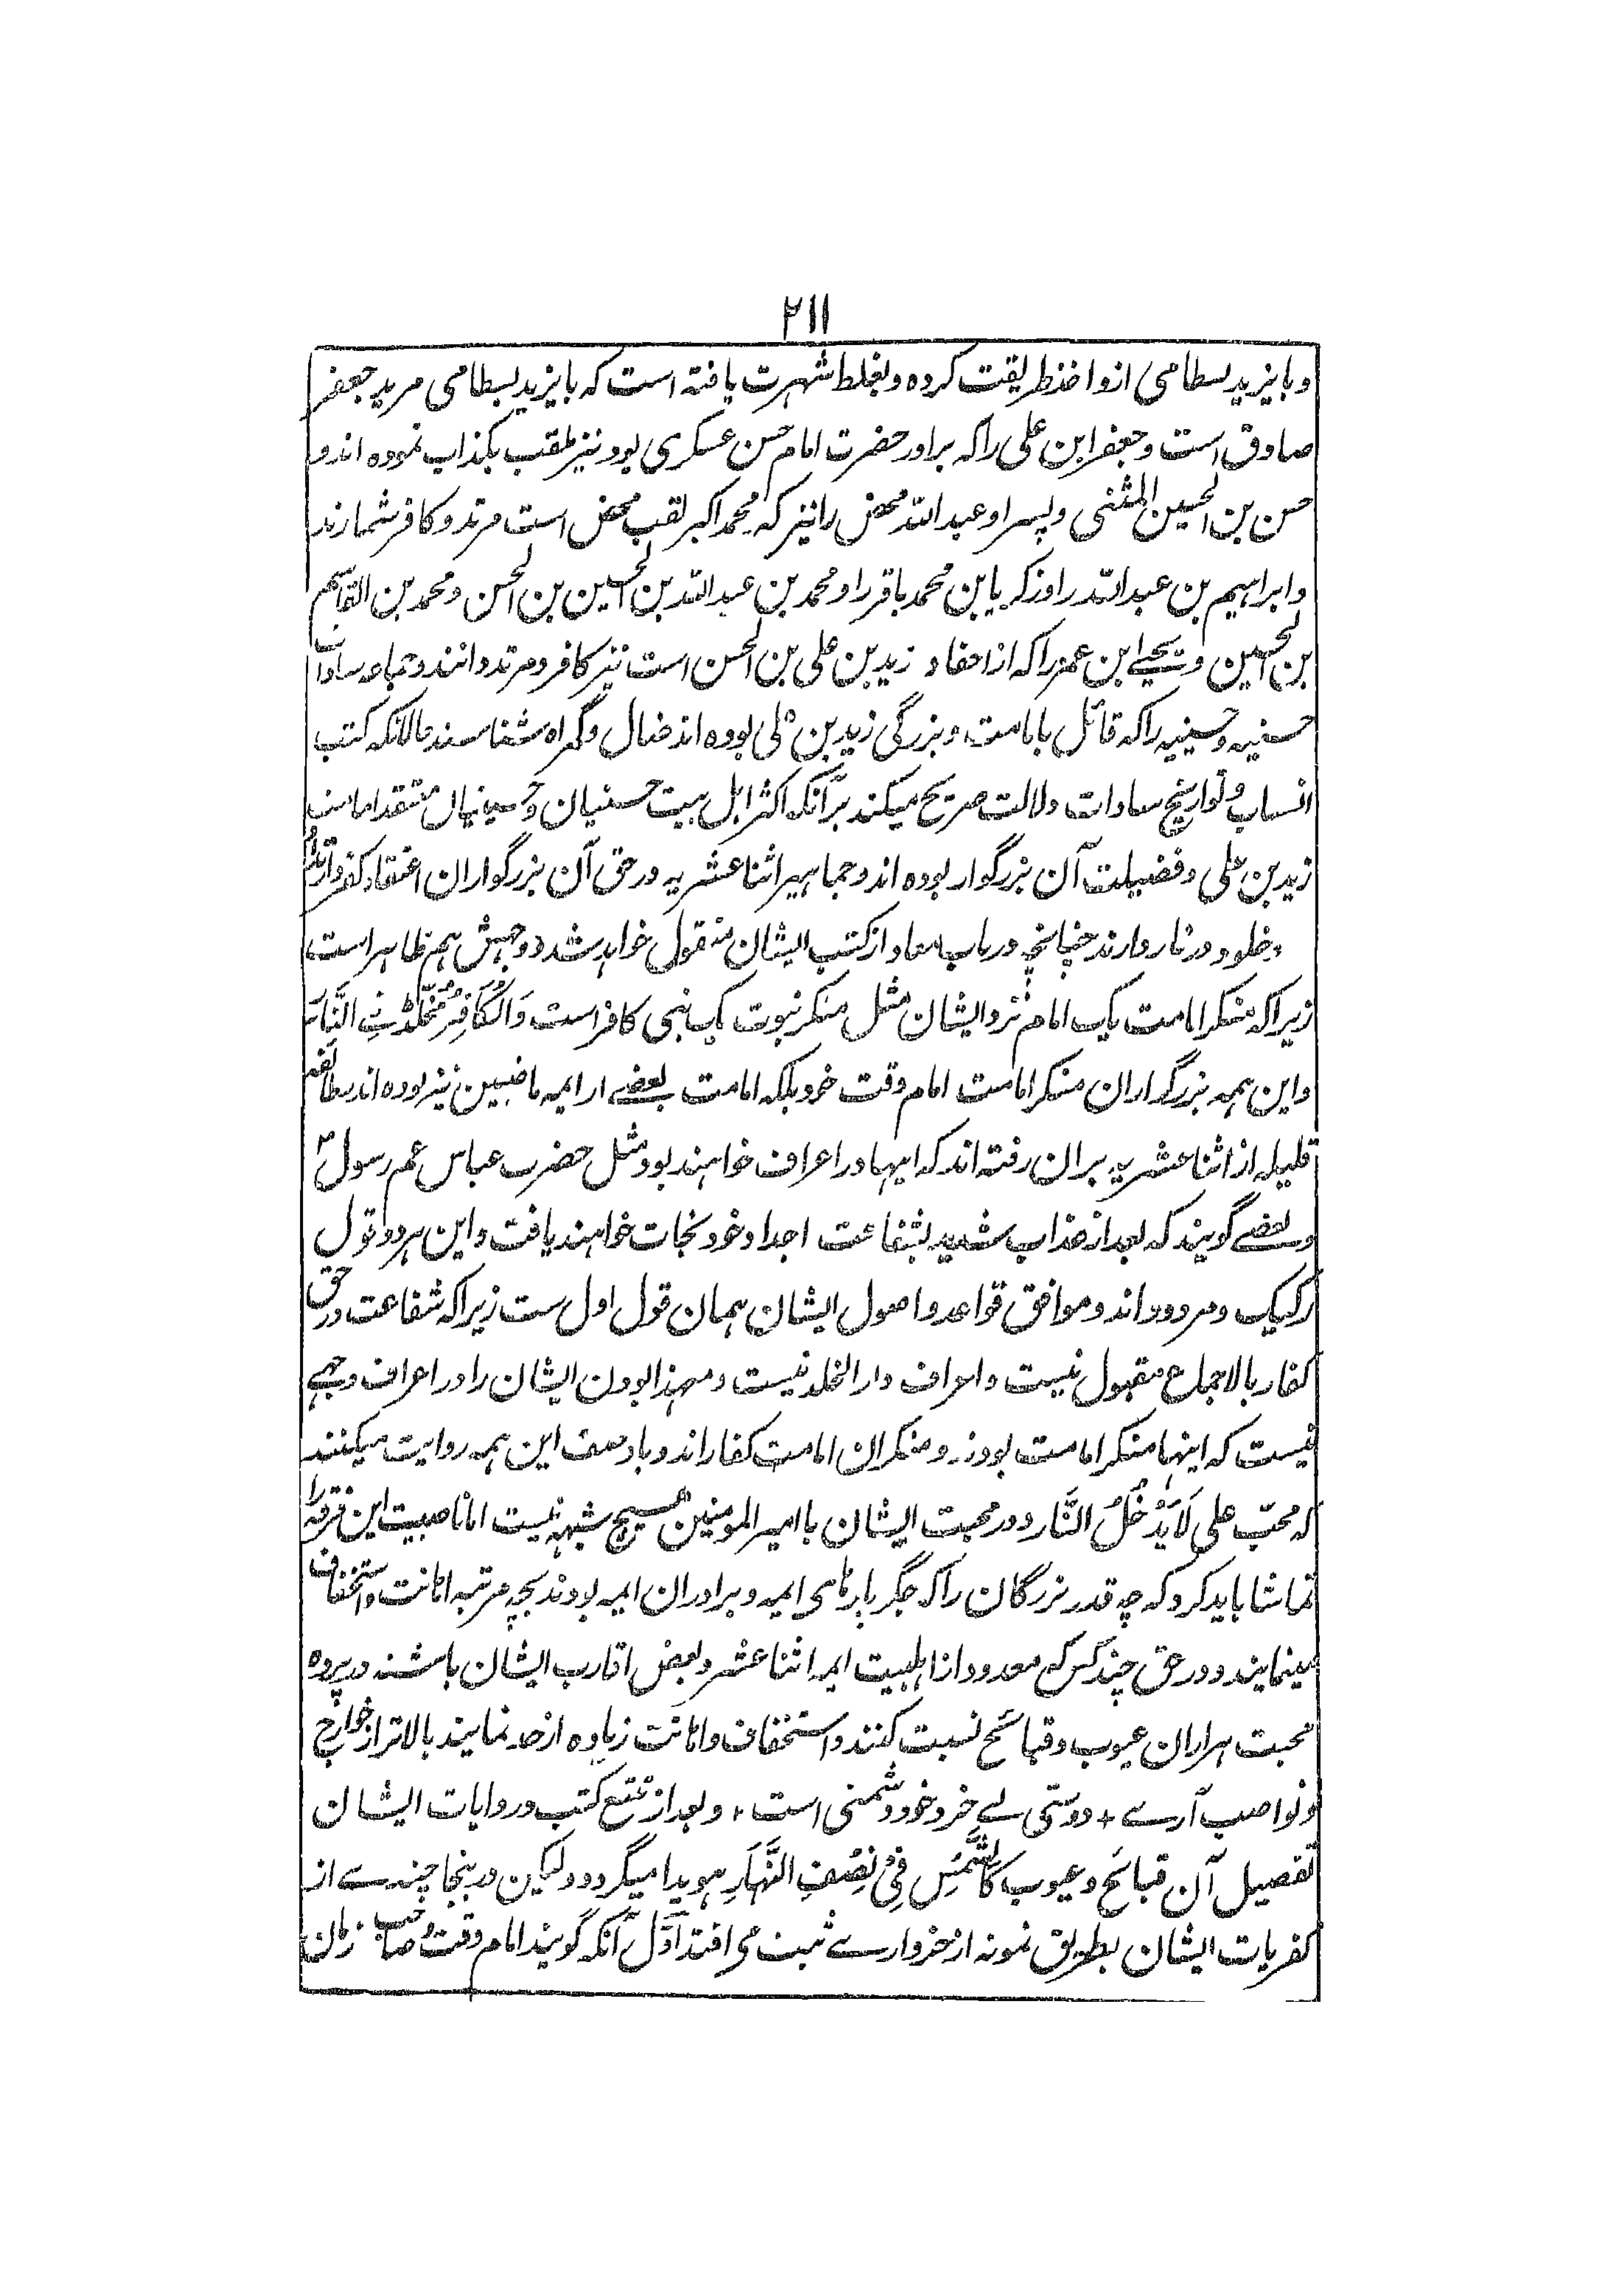 ۲۱۱
و بایزید بسطامی ازو اخذ طریقت کرده و بغلط شهرت یافته است که بایزید بسطامی مرید جعفر
صادق است و جعفر ابن علی را که برادر حضرت امام حسن عسکری بود نیز ملقب بکذاب نموده اند و
حسن بن الحسین المثنی و پسر او عبد الله محض را نیز که محمد اکبر لقب محض است مرتد و کافر شمارند
و ابراهیم بن عبد الله را و زکریا بن محمد باقر را و محمد بن عبد الله بن الحسین بن الحسن و محمد بن القاسم
بن الحسین و یحیی ابن عمر را که از احفاد زید بن علی بن الحسن است نیز کافر و مرتد دانند و جماعه سادات
حسنیه و حسینیه را که قائل بامامت و بزرگی زید بن علی بوده اند ضال و گمراه شناسند حالانکه کتب
انساب و تواریخ سادات دلالت صریح میکند بر آنکه اکثر اهل بیت حسنیان و حسینیان معتقد امامت
زید بن علی و فضیلت آن بزرگوار بوده اند و جماهیر اثنا عشریه در حق آن بزرگواران اعتقاد کفر و ارتداد
و خلود در نار دارند چنانچه در باب معاد از کتب ایشان منقول خواهد شد و وجهش هم ظاهر است
زیرا که منکر امامت یک امام نزد ایشان مثل منکر نبوت یک نبی کافر است وَالْکَافِرُ مُخَلَّدٌ فِی النَّارِ
و این همه بزرگواران منکر امامت امام وقت خود بلکه امامت بعضے از ایمه ماضیین نیز بوده اند طائفه
قلیله از اثنا عشریه بران رفته اند که اینها در اعراف خواهند بود مثل حضرت عباس عم رسول ؐ
و بعضے گویند که بعد از عذاب شدید بشفاعت اجداد خود نجات خواهند یافت و این هر دو قول
رکیک و مردود اند و موافق قواعد و اصول ایشان همان قول اول ست زیرا که شفاعت در حق
کفار بالاجماع مقبول نیست و اعراف دار الخلد نیست و معهذا بودن ایشان را در اعراف وجهے
نیست که اینها منکر امامت بودند و منکران امامت کفار اند و باوصف این همه روایت میکنند
که محبّ علی لَا یَدْخُلُ النَّار و در محبت ایشان با امیر المومنین هیچ شبهه نیست اما ناصبیت این فرقه را
تماشا باید کرد که چه قدر بزرگان را که جگر پارهای ایمه و برادران ایمه بودند بچه مرتبه اهانت و استخفاف
مینمایند و در حق چند کس معدود از اهلبیت ایمه اثنا عشر و بعض اقارب ایشان باشند در پرده
محبت هزاران عیوب و قبائح نسبت کنند و استخفاف و اهانت زیاده از حد نمایند بالاتر از خوارج
و نواصب آرے + دوستی بے خرد خود دشمنی است + و بعد از تتبع کتب و روایات ایشان
تفصیل آن قبائح و عیوب کَالشَّمْسِ فِیْ نِصْفِ النَّهَارِ هویدا میگردد و لیکن درینجا چندے از
کفریات ایشان بطریق نمونه از خروارے ثبت می افتد اَوَّل آنکه گویند امام وقت و صاحب زمان